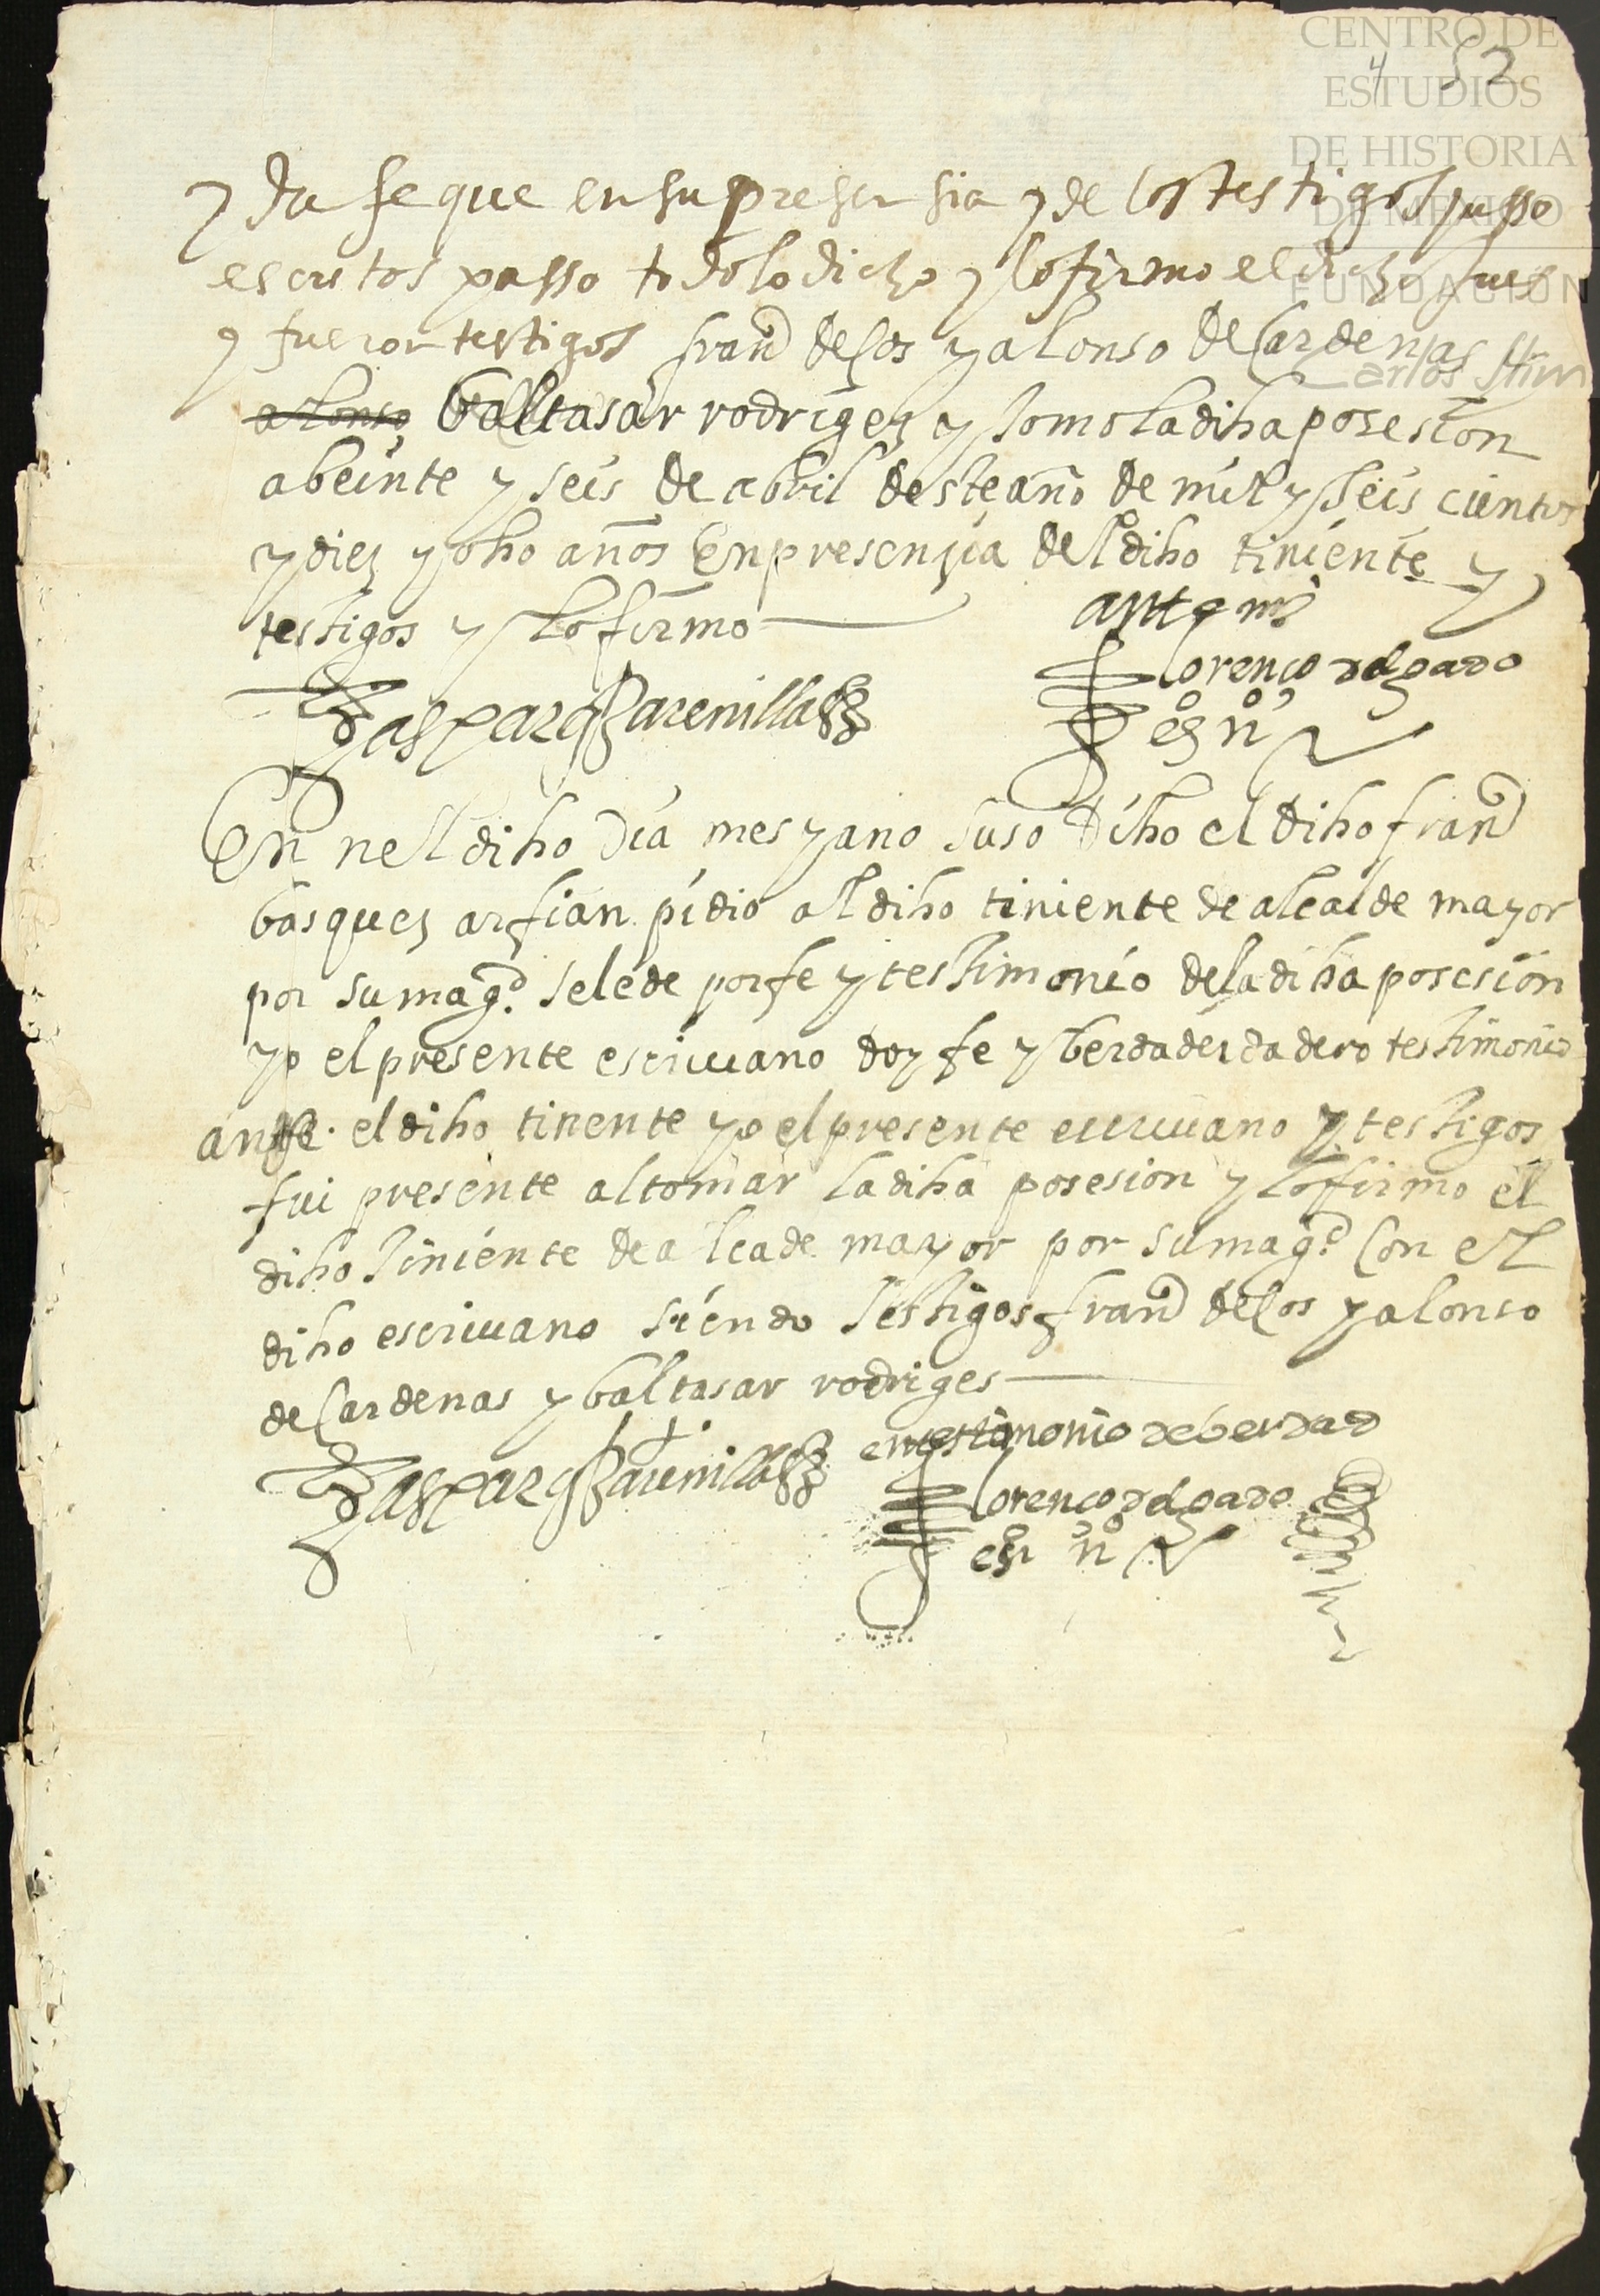 CENTRO DE
ESTUDIOS
DE HISTORIA
DE MÉXICO
FUNDACIÓN
Carlos Slim
4 52
y da fe que en su presensia y de los testigos yusso
escritos passo todo lo dicho y lo firmo el dicho Jues
y fueron testigos franco de los y alonso de Cardenas
alonso baltasar rodrigez y tomo la diha posesion
a beinte y seis de abril deste año de mil y seis cientos
y diez y oho años En presençia del diho tiniente y
testigos y lo firmo
ante mi
lorenço delgado
esno
gaspar
En nel diho dia mes y ano suso diho el diho franco
basquez arfian pidio al diho tiniente de alcalde mayor
por su magd. se le de por fe y testimonio de la diha posesion
yo el presente escriuano doy fe y berdaderdadero testimonio
ante el diho tinente yo el presente escriuano y testigos
fui presente al tomar la diha posesion y lo firmo el
diho tiniente de alcade mayor por su magd. Con el
diho escriuano siendo testigos franco de los y alonso
de Cardenas y baltasar rodriges
en testimonio de berdad
gaspar
lorenço delgado
esno